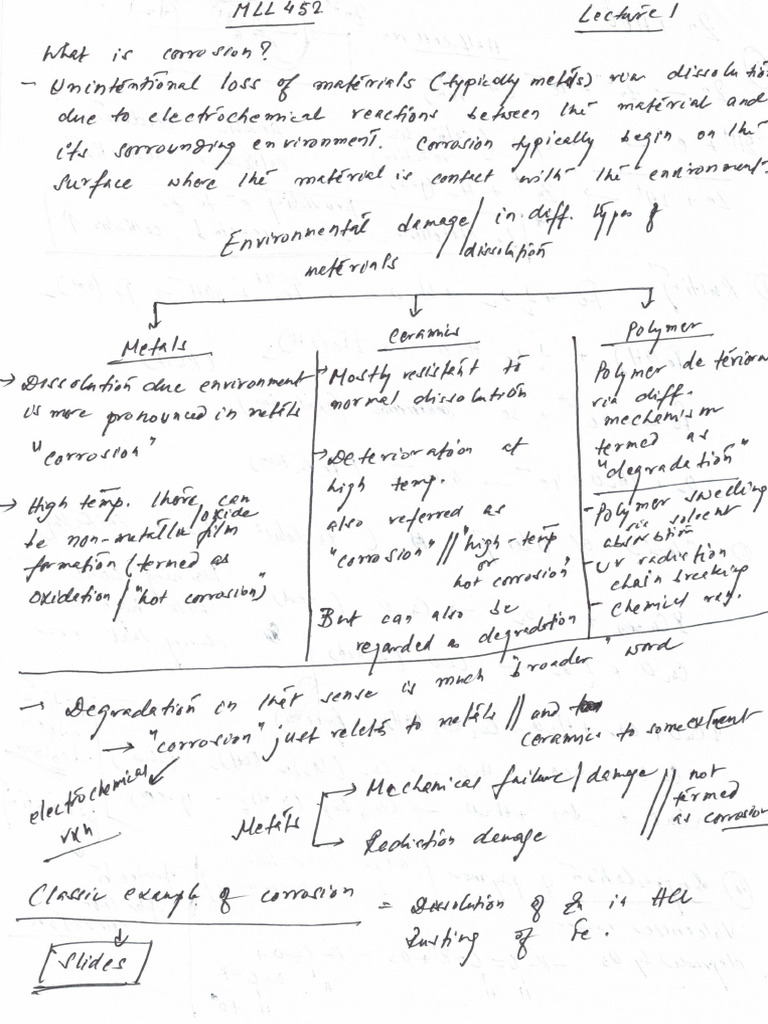 MLL 452
Lecture 1
What is corrosion?
- Unintentional loss of materials (typically metals) via dissolution
due to electrochemical reactions between the material and
its sorrounding environment. Corrosion typically begin on the
surface where the material is contact with the environment.
Environmental damage/dissolution in diff. types of
materials
Metals
→ Dissolution due environment
is more pronounced in metals
"corrosion"
→ High temp. there can
be non-metallic/oxide film
formation (termed as
oxidation/"hot corrosion")
Ceramics
→ Mostly resistent to
normal dissolution
→ Deterioration at
high temp.
also referred as
"corrosion" // "high-temp
or
hot corrosion"
But can also be
regarded as degradation
Polymer
Polymer deteriora
via diff.
mechanism
termed as
"degradation"
- Polymer swelling
via solvent
absorbtion
- UV radiation
chain breaking
- Chemical rxn.
→ Degradation in that sense is much "broader" word
→ "corrosion" just relets to metals // and
ceramics to some extuent
electrochemical
rxn
Metals
→ Mechanical failure/damage
→ Radiation damage
// not
termed
as corrosion
Classic example of corrosion = Dissolution of Zn in HCl
Rusting of Fe.
Slides